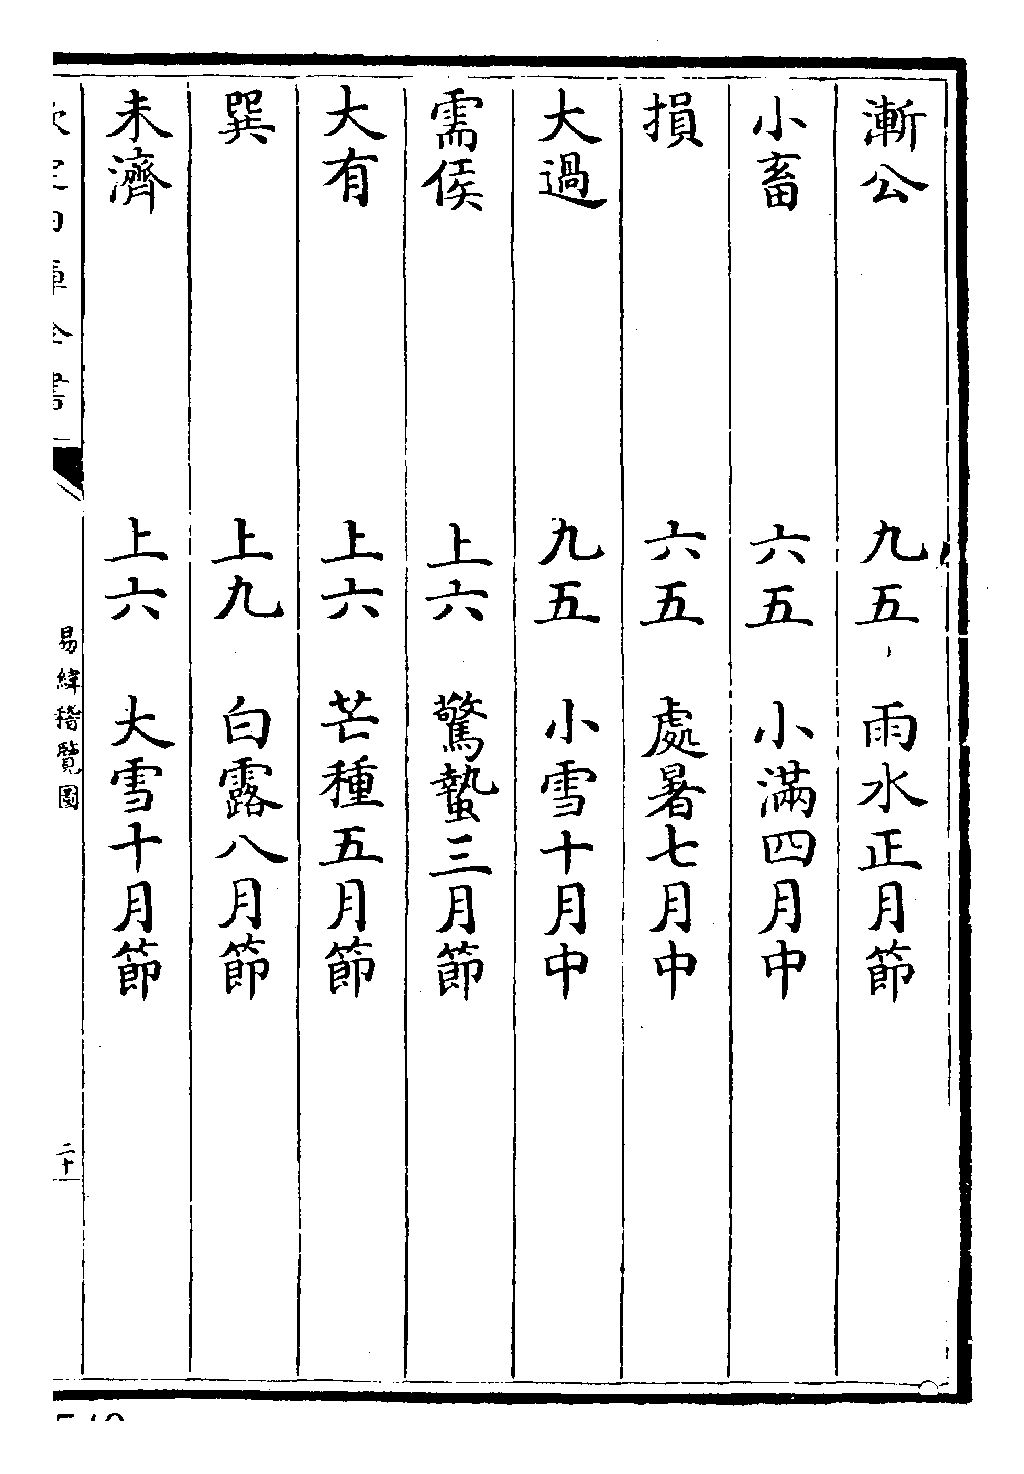 漸公 九五 雨水正月節
小畜 六五 小滿四月中
損 六五 處暑七月中
大過 九五 小雪十月中
需侯 上六 驚蟄三月節
大有 上六 芒種五月節
巽 上九 白露八月節
未濟 上六 大雪十月節
易緯稽覽圖 二十